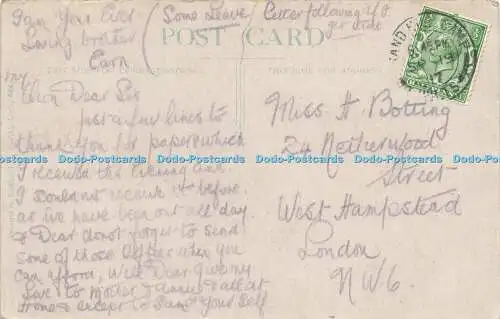 I am Your Ever
Loving brother
Earn
(Some Leave) Letter following if I
get time
POST CARD
AND
AP
19
Miss H Botting
24 Netherwood
Street
West Hampstead
London
N.W.6.
My
Own Dear Sis
just a few lines to
thank you for paper which
I received this Evening and
I could not receive it before
as we have been out all day
& Dear do not forget to send
some of those when you
can afford, Well Dear Give my
love to Mother & Annie & all at
Home & except to Same Your Self
Dodo-Postcards Dodo-Postcards Dodo-Postcards Dodo-Postcards Dodo-Postcards Dodo-Postcards Dodo-Postcards